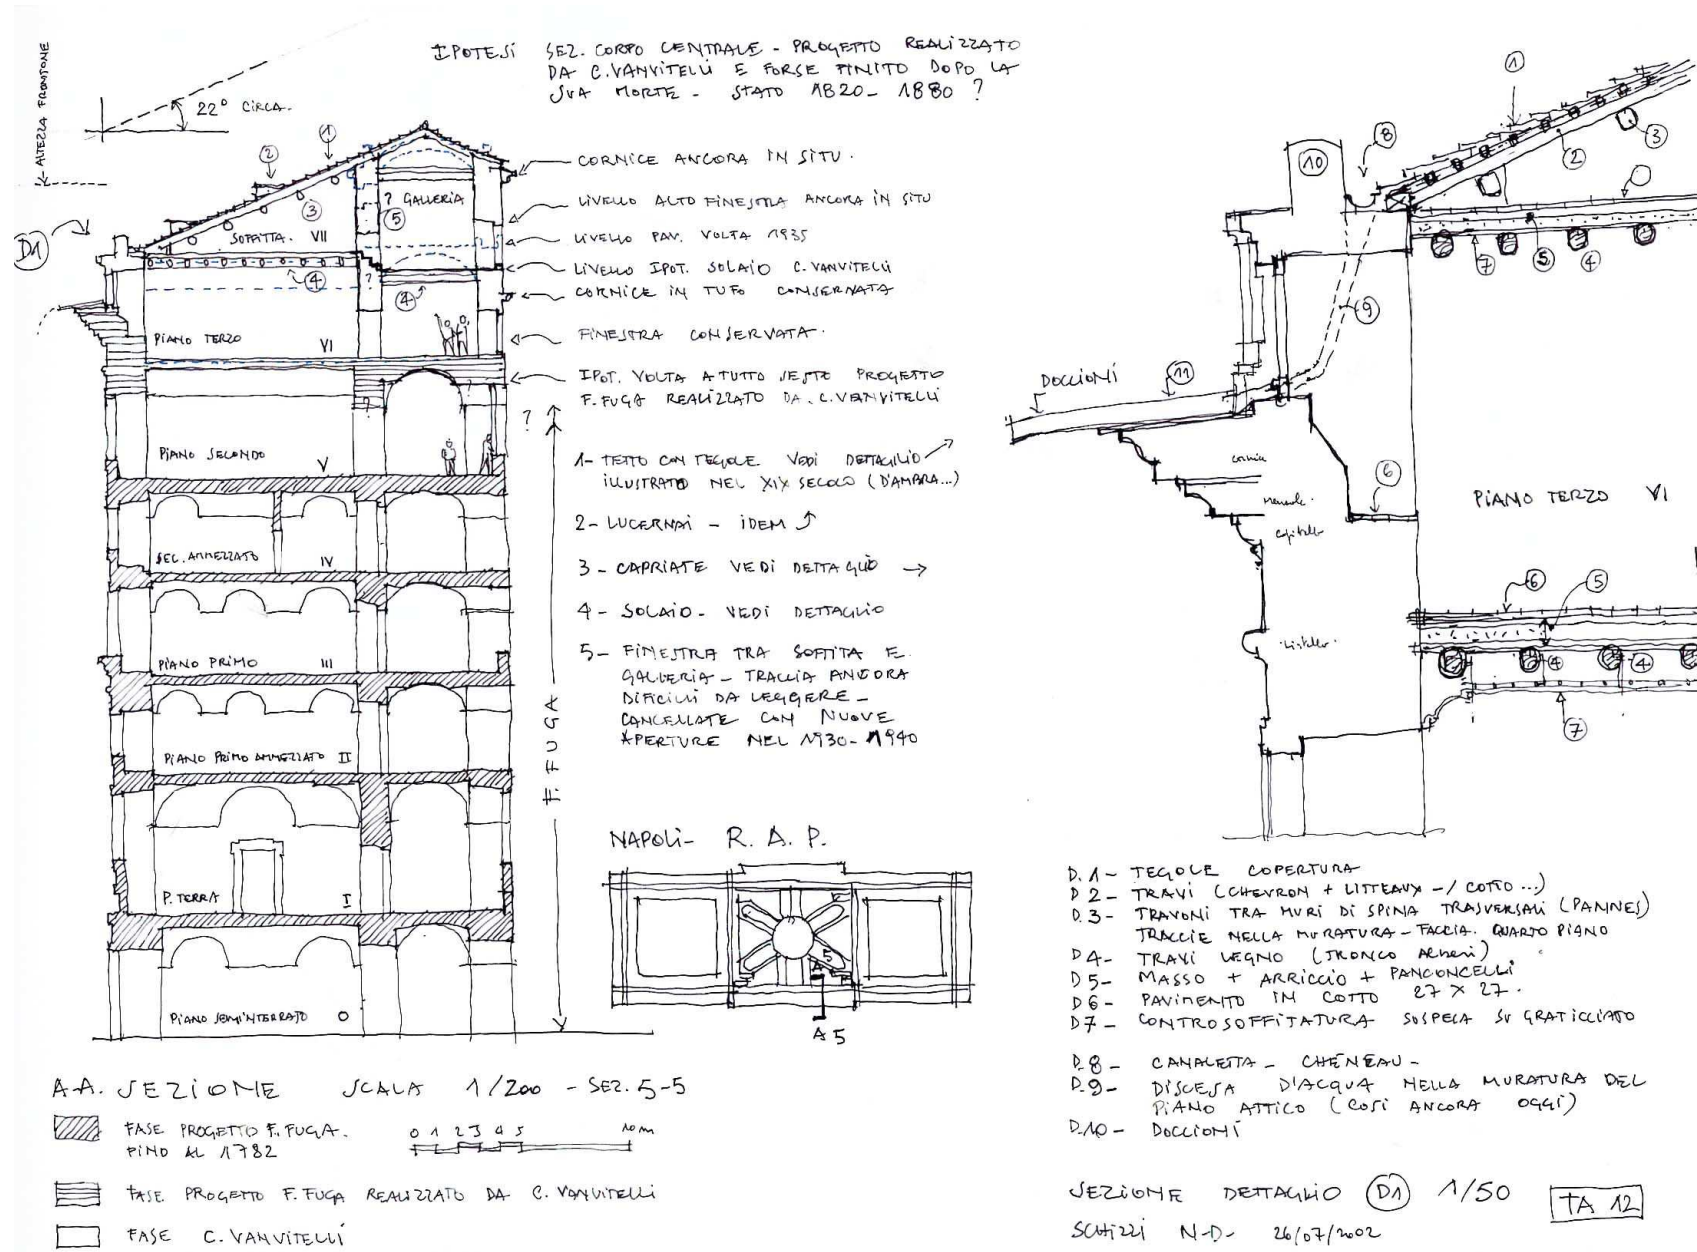 IPOTESI SEZ. CORPO CENTRALE - PROGETTO REALIZZATO
DA C. VANVITELLI E FORSE FINITO DOPO LA
SUA MORTE - STATO 1820-1880 ?
ALTEZZA FRONTONE
22° CIRCA.
1
2
3
D1
? GALLERIA
5
SOFFITTA. VII
4
?
4
PIANO TERZO VI
?
?
?
PIANO SECONDO V
SEC. AMMEZZATO IV
PIANO PRIMO III
PIANO PRIMO AMMEZZATO II
P. TERRA I
PIANO SEMINTERRATO O
F. FUGA
CORNICE ANCORA IN SITU.
LIVELLO ALTO FINESTRA ANCORA IN SITU
LIVELLO PAV. VOLTA 1935
LIVELLO IPOT. SOLAIO C. VANVITELLI
CORNICE IN TUFO CONSERVATA
FINESTRA CONSERVATA.
IPOT. VOLTA A TUTTO SESTO PROGETTO
F. FUGA REALIZZATO DA. C. VANVITELLI
1- TETTO CON TEGOLE VEDI DETTAGLIO
ILLUSTRATO NEL XIX SECOLO (D'AMBRA...)
2- LUCERNAI - IDEM
3- CAPRIATE VEDI DETTAGLIO →
4- SOLAIO- VEDI DETTAGLIO
5- FINESTRA TRA SOFFITA E
GALLERIA - TRACCIA ANCORA
DIFICILI DA LEGGERE -
CANCELLATE CON NUOVE
APERTURE NEL 1930-1940
NAPOLI- R. A. P.
5
A
A 5
A-A. SEZIONE SCALA 1/200 - SEZ. 5-5
FASE PROGETTO F. FUGA.
FINO AL 1782
0 1 2 3 4 5 10m
FASE PROGETTO F. FUGA REALIZZATO DA C. VANVITELLI
FASE C. VANVITELLI
1
8
10
2
3
7
5
4
9
DOCCIONI
11
cornice
mensole.
capitello
6
PIANO TERZO VI
listello.
6
5
4
4
7
D.1- TEGOLE COPERTURA
D 2- TRAVI (CHEVRON + LITTEAUX -/ COTTO ...)
D.3- TRAVONI TRA MURI DI SPINA TRASVERSALI (PANNES)
TRACCIE NELLA MURATURA - FACCIA. QUARTO PIANO
D 4- TRAVI LEGNO (TRONCO ALBERI)
D 5- MASSO + ARRICCIO + PANCONCELLI
D 6- PAVIMENTO IN COTTO 27 X 27.
D7- CONTROSOFFITATURA SOSPESA SU GRATICCIATO
D.8- CANALETTA - CHÉNEAU -
D.9- DISCESA D'ACQUA NELLA MURATURA DEL
PIANO ATTICO (COSI ANCORA OGGI)
D.10- DOCCIONI
SEZIONE DETTAGLIO D1 1/50
TA 12
SCHIZZI N-D- 26/07/2002